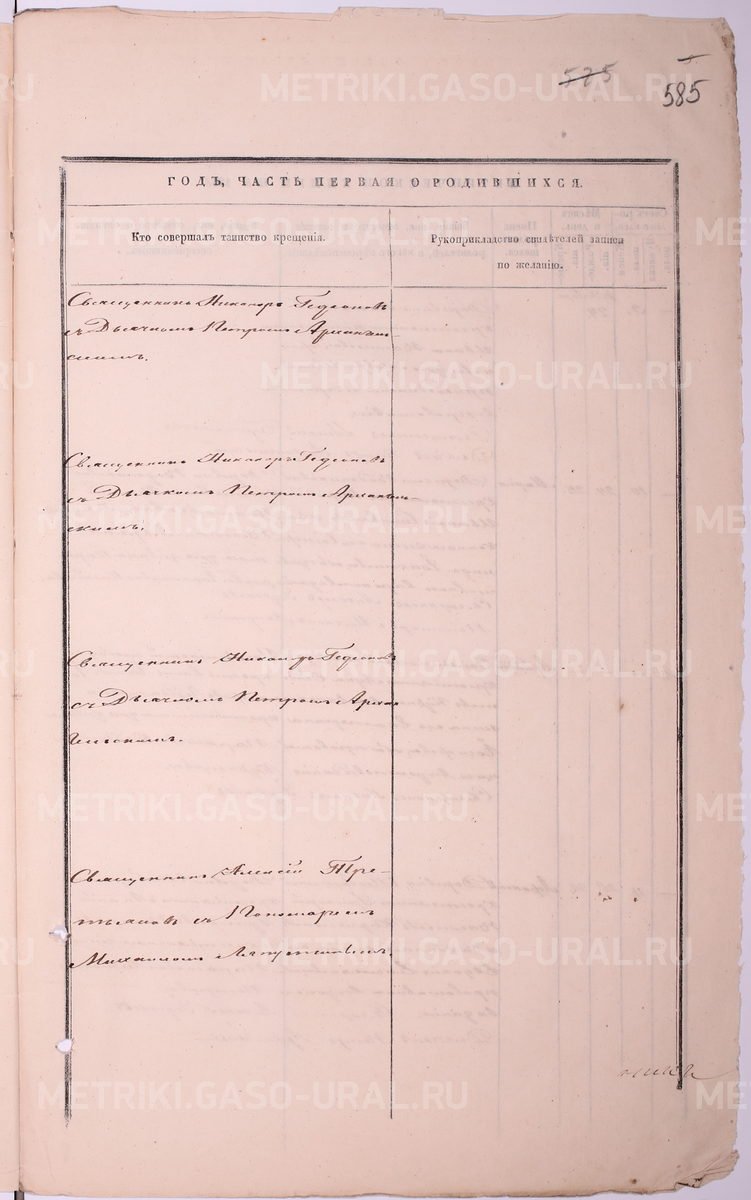 575
585
ГОДЪ, ЧАСТЬ ПЕРВАЯ О РОДИВШИХСЯ.
Кто совершалъ таинство крещенія.
Рукоприкладство свидѣтелей записи
по желанію.
Священникъ Никаноръ Гедеоновъ
съ Дьячкомъ Петромъ Архангель-
скимъ.
Священникъ Никаноръ Гедеоновъ
съ Дьячкомъ Петромъ Архангель-
скимъ.
Священникъ Никаноръ Гедеоновъ
съ Дьячкомъ Петромъ Архан
гельскимъ.
Священникъ Алексій Тре-
тьяковъ съ Пономаремъ
Михаиломъ
METRIKI.GASO-URAL.RU